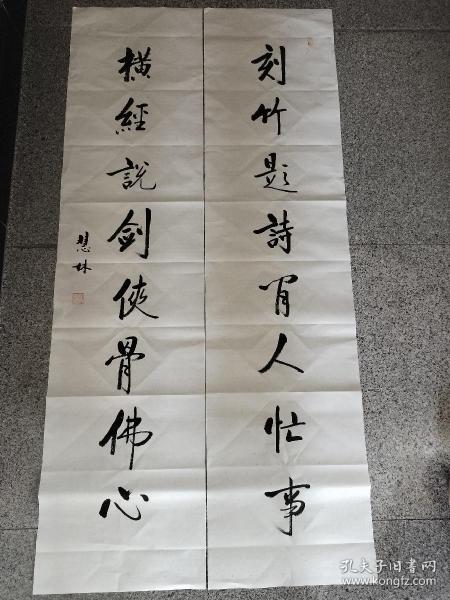 刻竹題詩閒人忙事
橫經說劍俠骨佛心
慧林
孔夫子旧书网
www.kongfz.com